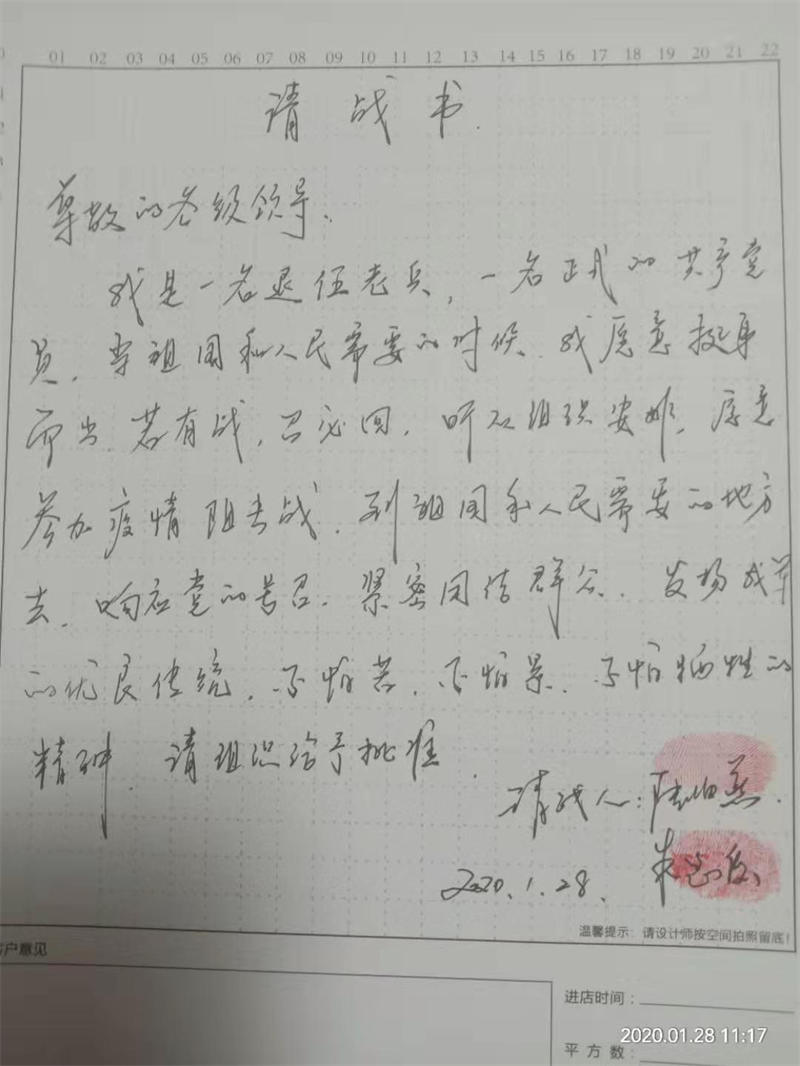 01 02 03 04 05 06 07 08 09 10 11 12 13 14 15 16 17 18 19 20 21 22
请战书
尊敬的各级领导、
我是一名退伍老兵，一名正式的共产党
员，当祖国和人民需要的时候、我愿意挺身
而出，若有战，召必回，听从组织安排，愿意
参加疫情阻击战，到祖国和人民需要的地方
去，响应党的号召，紧密团结群众，发扬我军
的优良传统，不怕苦，不怕累，不怕牺牲的
精神，请组织给予批准．
请战人：陆
2020.1.28. 朱
温馨提示：请设计师按空间拍照留底！
客户意见
进店时间：
2020.01.28 11:17
平方数：